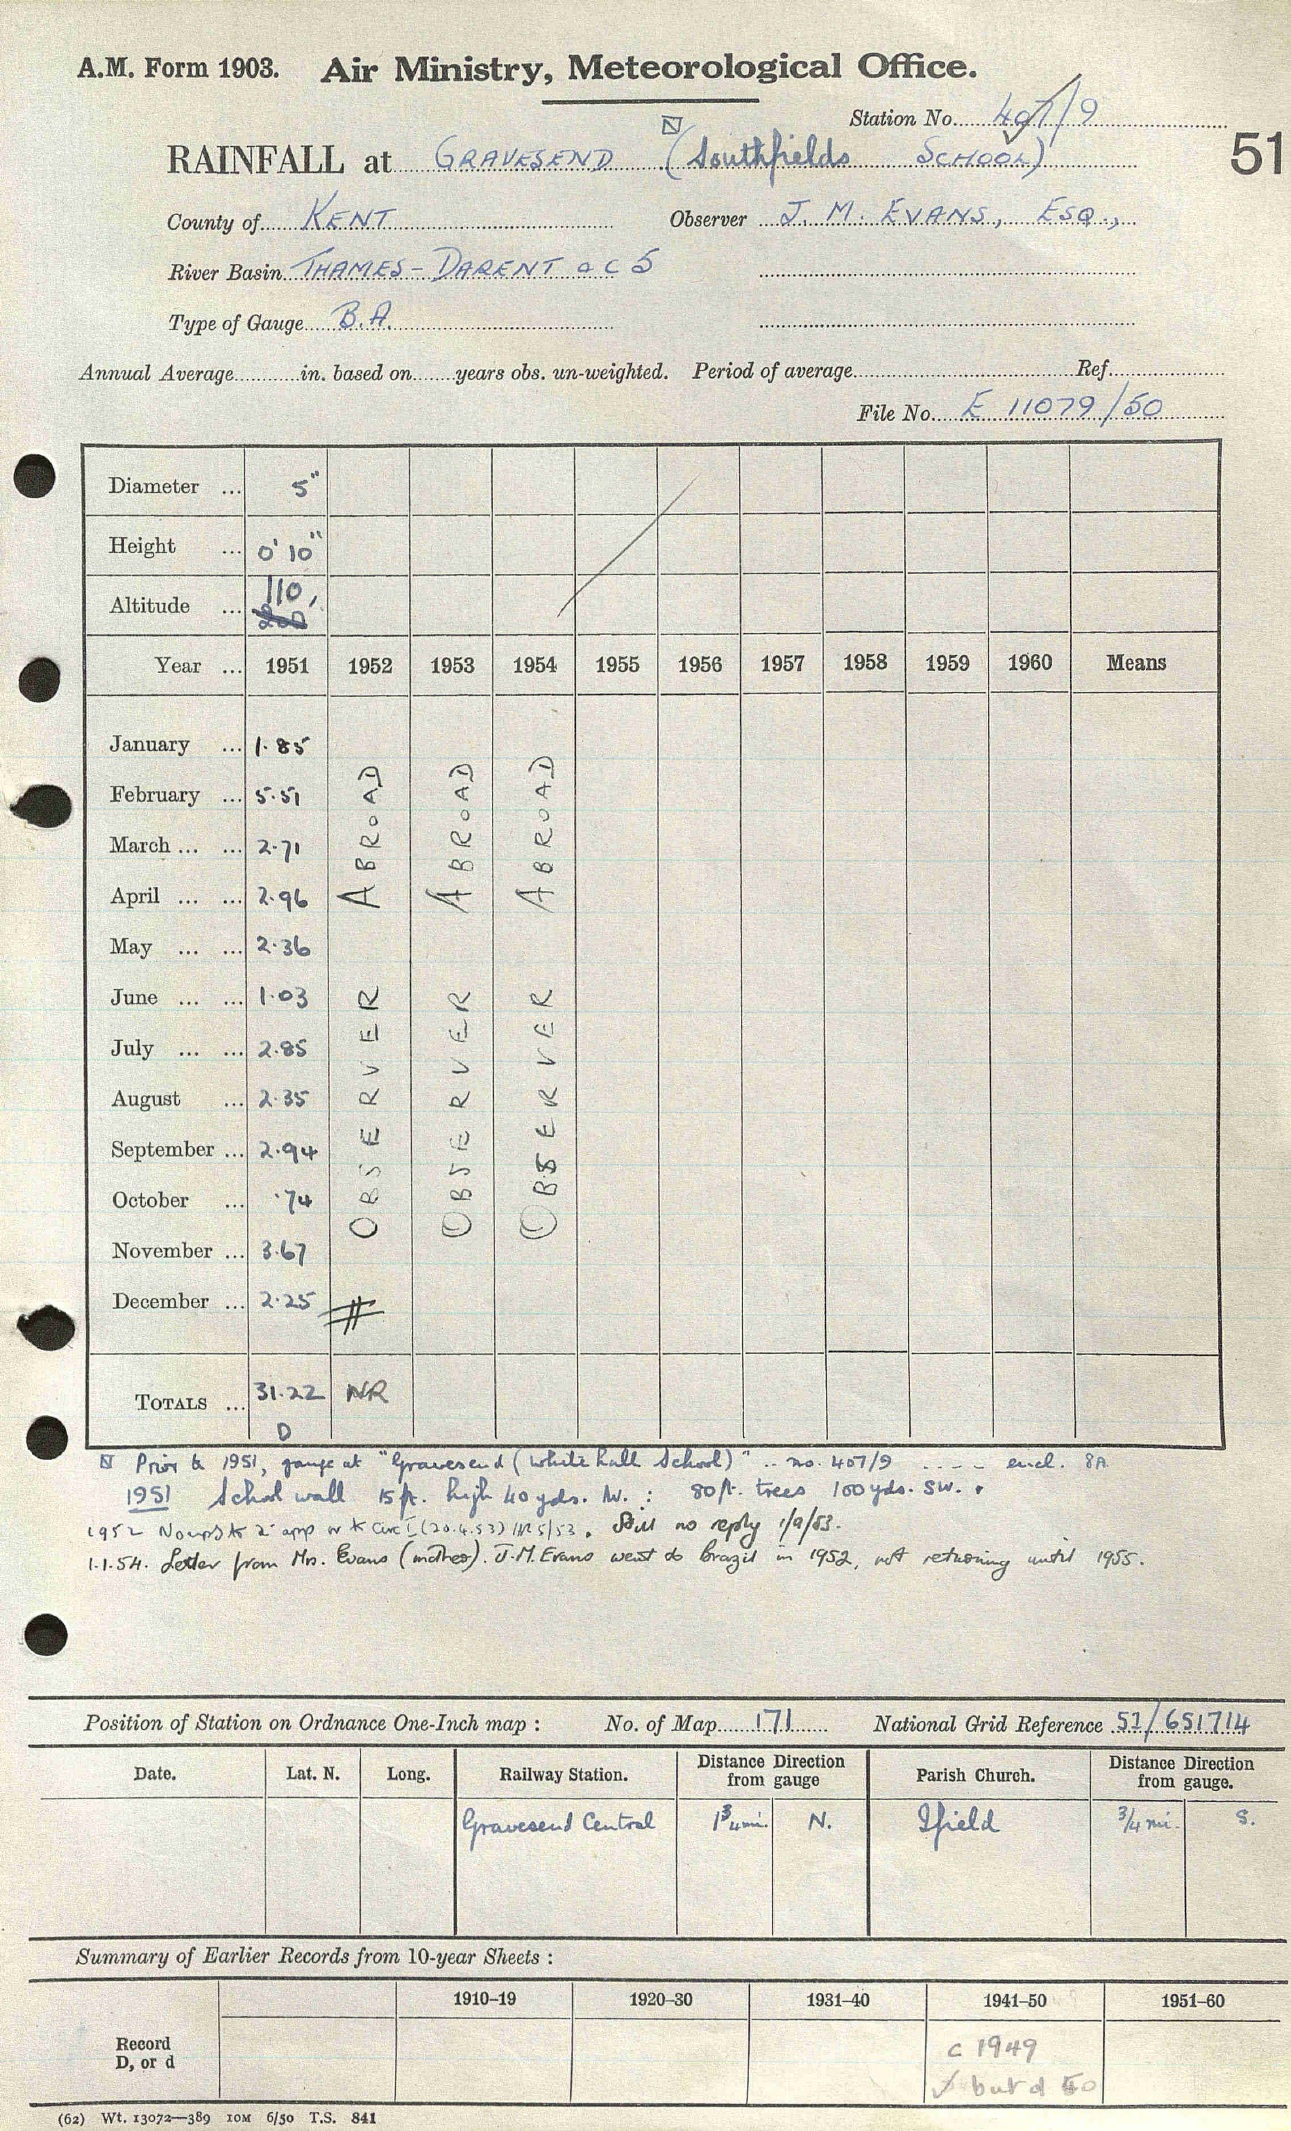 A.M. Form 1903. Air Ministry, Meteorological Office.
Station No. 407/9
51
RAINFALL at GRAVESEND (Southfields SCHOOL)
County of KENT Observer J. M. EVANS, ESQ.,
River Basin THAMES - DARENT
Type of Gauge B.A.
Annual Average in. based on years obs. un-weighted. Period of average Ref.
File No. E 11079/50
Diameter ... 5"
Height ... 0' 10"
Altitude ... 110, 200
Year ... 1951 1952 1953 1954 1955 1956 1957 1958 1959 1960 Means
OBSERVER ABROAD
OBSERVER ABROAD
OBSERVER ABROAD
January ... 1.85
February ... 5.51
March ... ... 2.71
April ... ... 2.96
May ... ... 2.36
June ... ... 1.03
July ... ... 2.85
August ... 2.35
September ... 2.94
October ... .74
November ... 3.67
December ... 2.25 #
TOTALS ... 31.22 NR
D
Prior to 1951, gauge at "Gravesend (White hall School)" .. no. 407/9 .... encl. 8A
1951 School wall 15 ft. high 40 yds. : 80 ft. trees 100 yds. SW.
1952 (20.4.53) Still no reply 1/9/53.
1.1.54. Letter from Mrs. Evans (mother). J.M. Evans went to Brazil in 1952, not returning until 1955.
Position of Station on Ordnance One-Inch map : No. of Map 171 National Grid Reference 51/651714
Date. Lat. N. Long. Railway Station. Distance Direction from gauge Parish Church. Distance Direction from gauge.
Gravesend Central 1 3/4 mi. N. Ifield 3/4 mi. S.
Summary of Earlier Records from 10-year Sheets :
1910–19 1920–30 1931–40 1941–50 1951–60
Record
D, or d
c 1949
✓ but d 50
(62) Wt. 13072—389 10M 6/50 T.S. 841